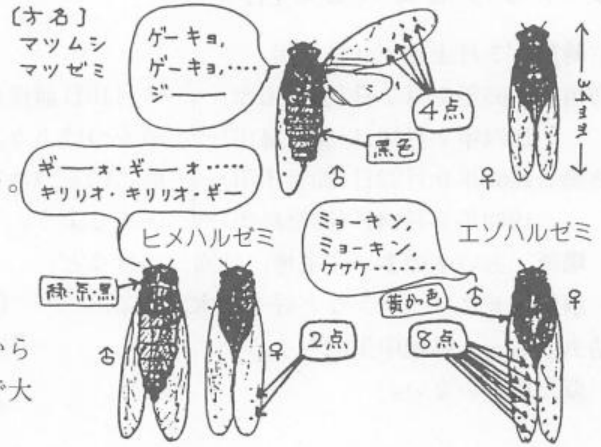 〔方名〕
マツムシ
マツゼミ
ゲーキョ,
ゲーキョ,……
ジー
4点
黒色
♂
♀
34mm
ギーーォ・ギーーォ……
キリリオ・キリリオ・ギー
。
ヒメハルゼミ
緑・茶・黒
♂
♀
2点
ミョーキン,
ミョーキン,
ケケケ………
エゾハルゼミ
黄かっ色
♂
♀
8点
から
で大